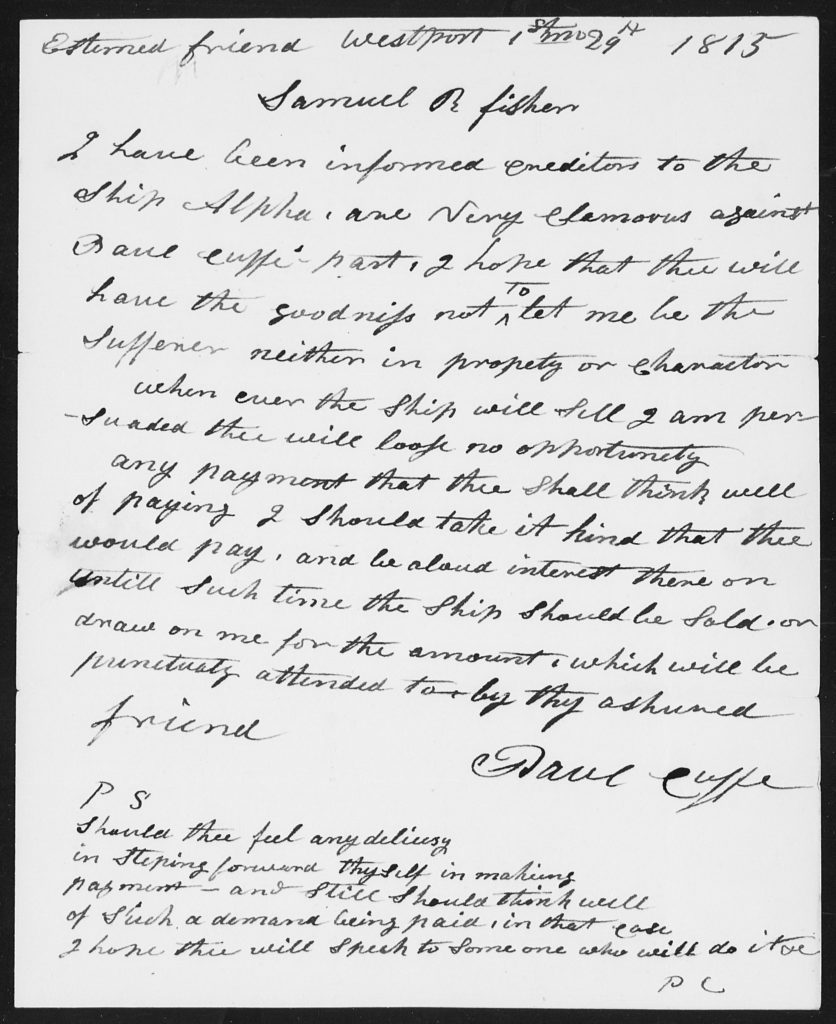 Estemed friend Westport 1st mo 29th 1815
Samuel R fisher
I have been informed creditors to the
Ship Alpha, are Very Clamorus against
Paul Cuffe part, I hope that thee will
have the goodniss not to let me be the
Sufferer neither in propety or Charactor
when ever the Ship will Sell I am per-
-Suaded thee will loose no opportunety
any payment that thee Shall think well
of paying I Should take it kind that thee
would pay, and be aloud interest there on
untill Such time the Ship Should be Sold, or
draw on me for the amount, which will be
punctualy attended to by thy ashured
friend
Paul Cuffe
P S
Should thee feel any delicusy
in Steping forward thyself in making
payment - and Still Should think well
of Such a demand being paid, in that case
I hope thee will Speak to Some one who will do it
P C